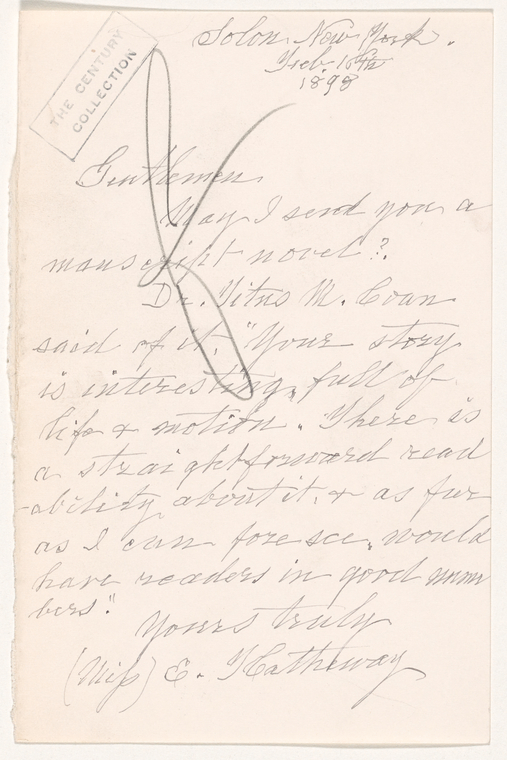 THE CENTURY
COLLECTION
Solon New York.
Feb. 16th
1898
Gentlemen
May I send you a
manscript novel?
Dr. Titus M. Coan
said of it, "Your story
is interesting, full of
life & motion. There is
a straightforward read
-ability about it, & as far
as I can foresee, would
have readers in good num
bers".
Yours truly
(Miss) E. Hatheway